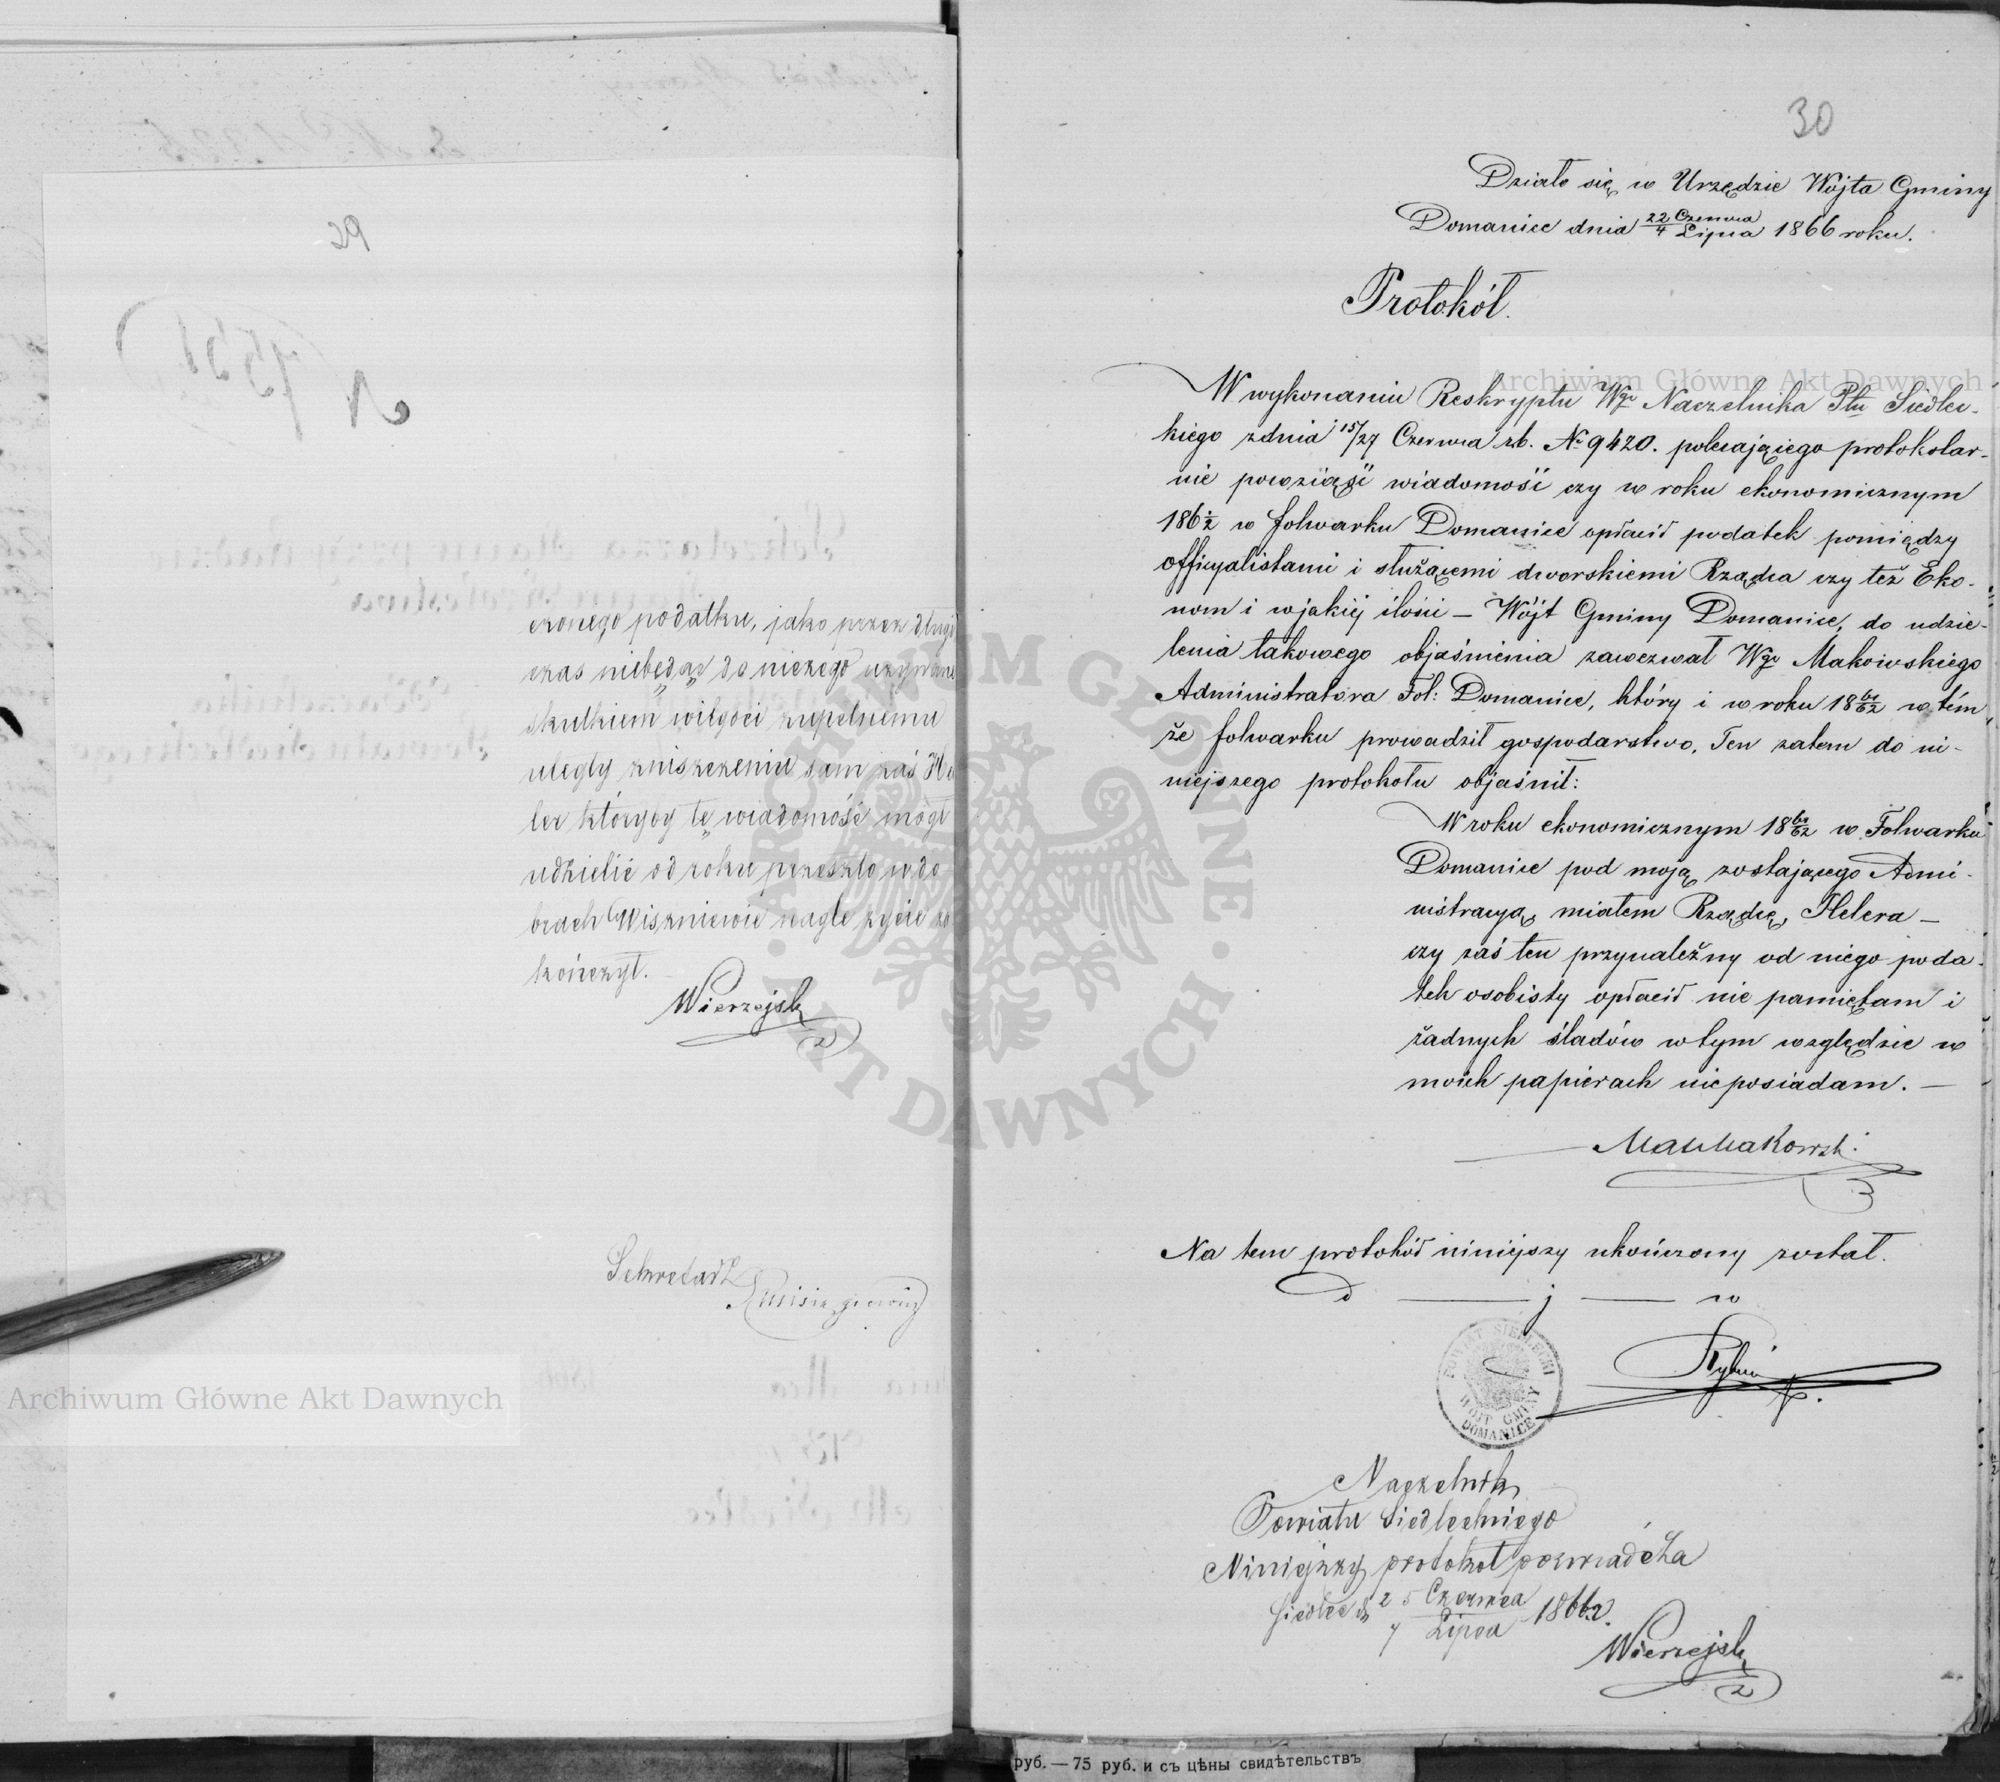 czonego podatku, jako przez długi
czas niebędąc do niczego używane
skutkiem wilgoci zupełnemu
uległy zniszczeniu sam zaś He
ler któryby tę wiadomość mógł
udzielić od roku przeszło w do
brach Wiszniewie nagle życie za
kończył.
Wierzejsk
Sekretarz
Archiwum Główne Akt Dawnych
30
Działo się w Urzędzie Wójta Gminy
Domanice dnia 22 Czerwca / 4 Lipca 1866 roku.
Protokół.
W wykonaniu Reskryptu Wgo Naczelnika Ptu Siedlec-
kiego zdnia 15/27 Czerwca rb. No 9420. polecającego protokolar-
nie powziąść wiadomość czy w roku ekonomicznym
186½ w folwarku Domanice opłacił podatek pomiędzy
officyalistami i służącemi dworskiemi Rządca czy też Eko-
nom i wjakiéj ilości — Wójt Gminy Domanice, do udzie-
lenia takowego objaśnienia zawezwał Wgo Makowskiego
Administratora Fol: Domanice, który i w roku 18 61/62 w tém
że folwarku prowadził gospodarstwo, Ten zatem do ni-
niejszego protokołu objaśnił:
W roku ekonomicznym 18 61/62 w Folwarku
Domanice pod moją zostającego Admi-
nistracyą, miałem Rządcę, Helera —
czy zaś ten przynależny od niego poda-
tek osobisty opłacił nie pamiętam i
żadnych śladów wtym względzie w
moich papierach nieposiadam. —
Makowski
Na tem protokół niniejszy ukończony został.
d — j — w
POWIAT SIEDLECKI
WÓJT GMINY
DOMANICE
Naczelnik
Powiatu Siedleckiego
Niniejszy protokół poświadcza
Siedlce d. 25 Czerwca / 7 Lipca 1866 r.
Wierzejsk
Archiwum Główne Akt Dawnych
ARCHIWUM GŁÓWNE · AKT DAWNYCH ·
руб. — 75 руб. и съ цѣны свидѣтельствъ